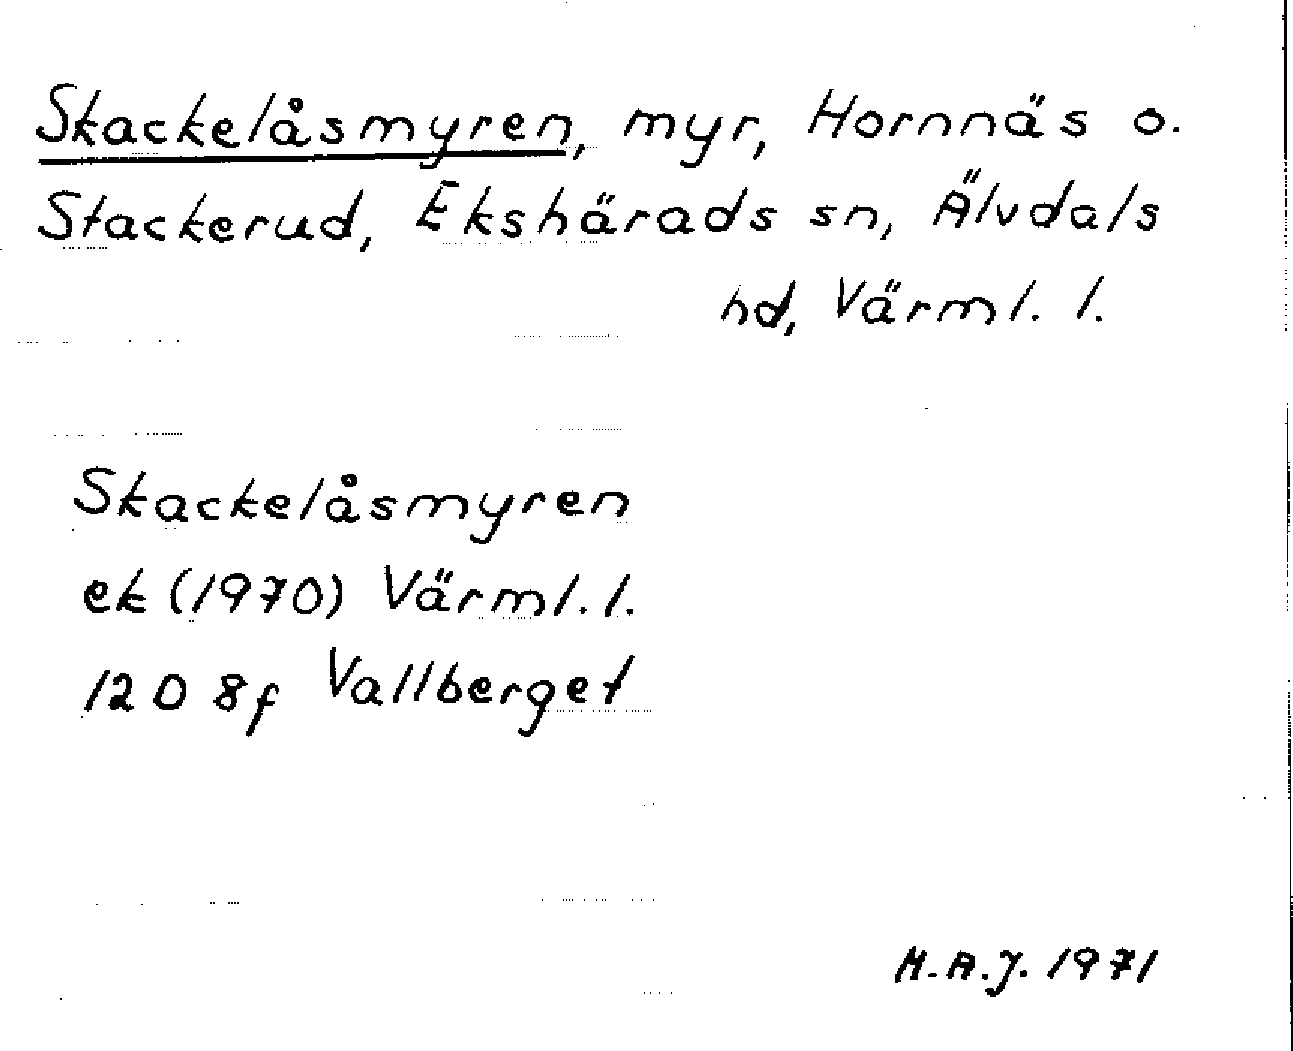 Skackelåsmyren, myr, Hornnäs o.
Stackerud, Ekshärads sn, Älvdals
hd, Värml. l.
Skackelåsmyren
ek (1970) Värml. l.
12 D 8f Vallberget
M.A.J. 1971